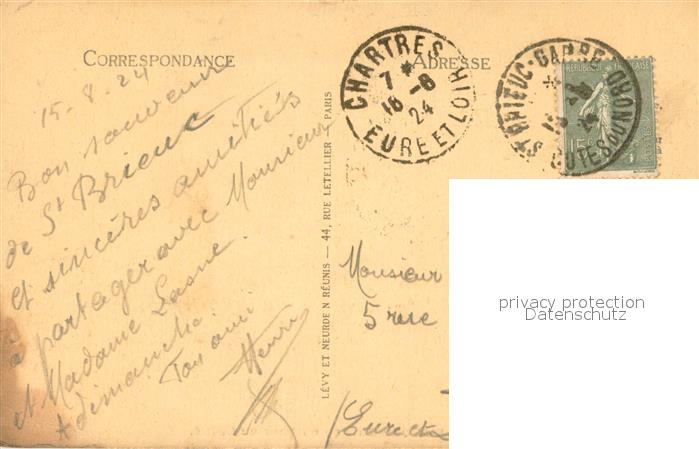 CORRESPONDANCE
ADRESSE
CHARTRES
7 *
16 -8
24
EURE ET LOIR
ST BRIEUC-GARE
COTES DU NORD
RÉPUBLIQUE FRANÇAISE
15c
15-8-24
Bon souvenir
de St Brieuc
et sincères amitiés
à partager avec Monsieur
et Madame Lasne.
A dimanche
Ton ami
Henri
LÉVY ET NEURDEIN RÉUNIS — 44, RUE LETELLIER — PARIS
Monsieur
5 rue
(Eure et
privacy protection
Datenschutz